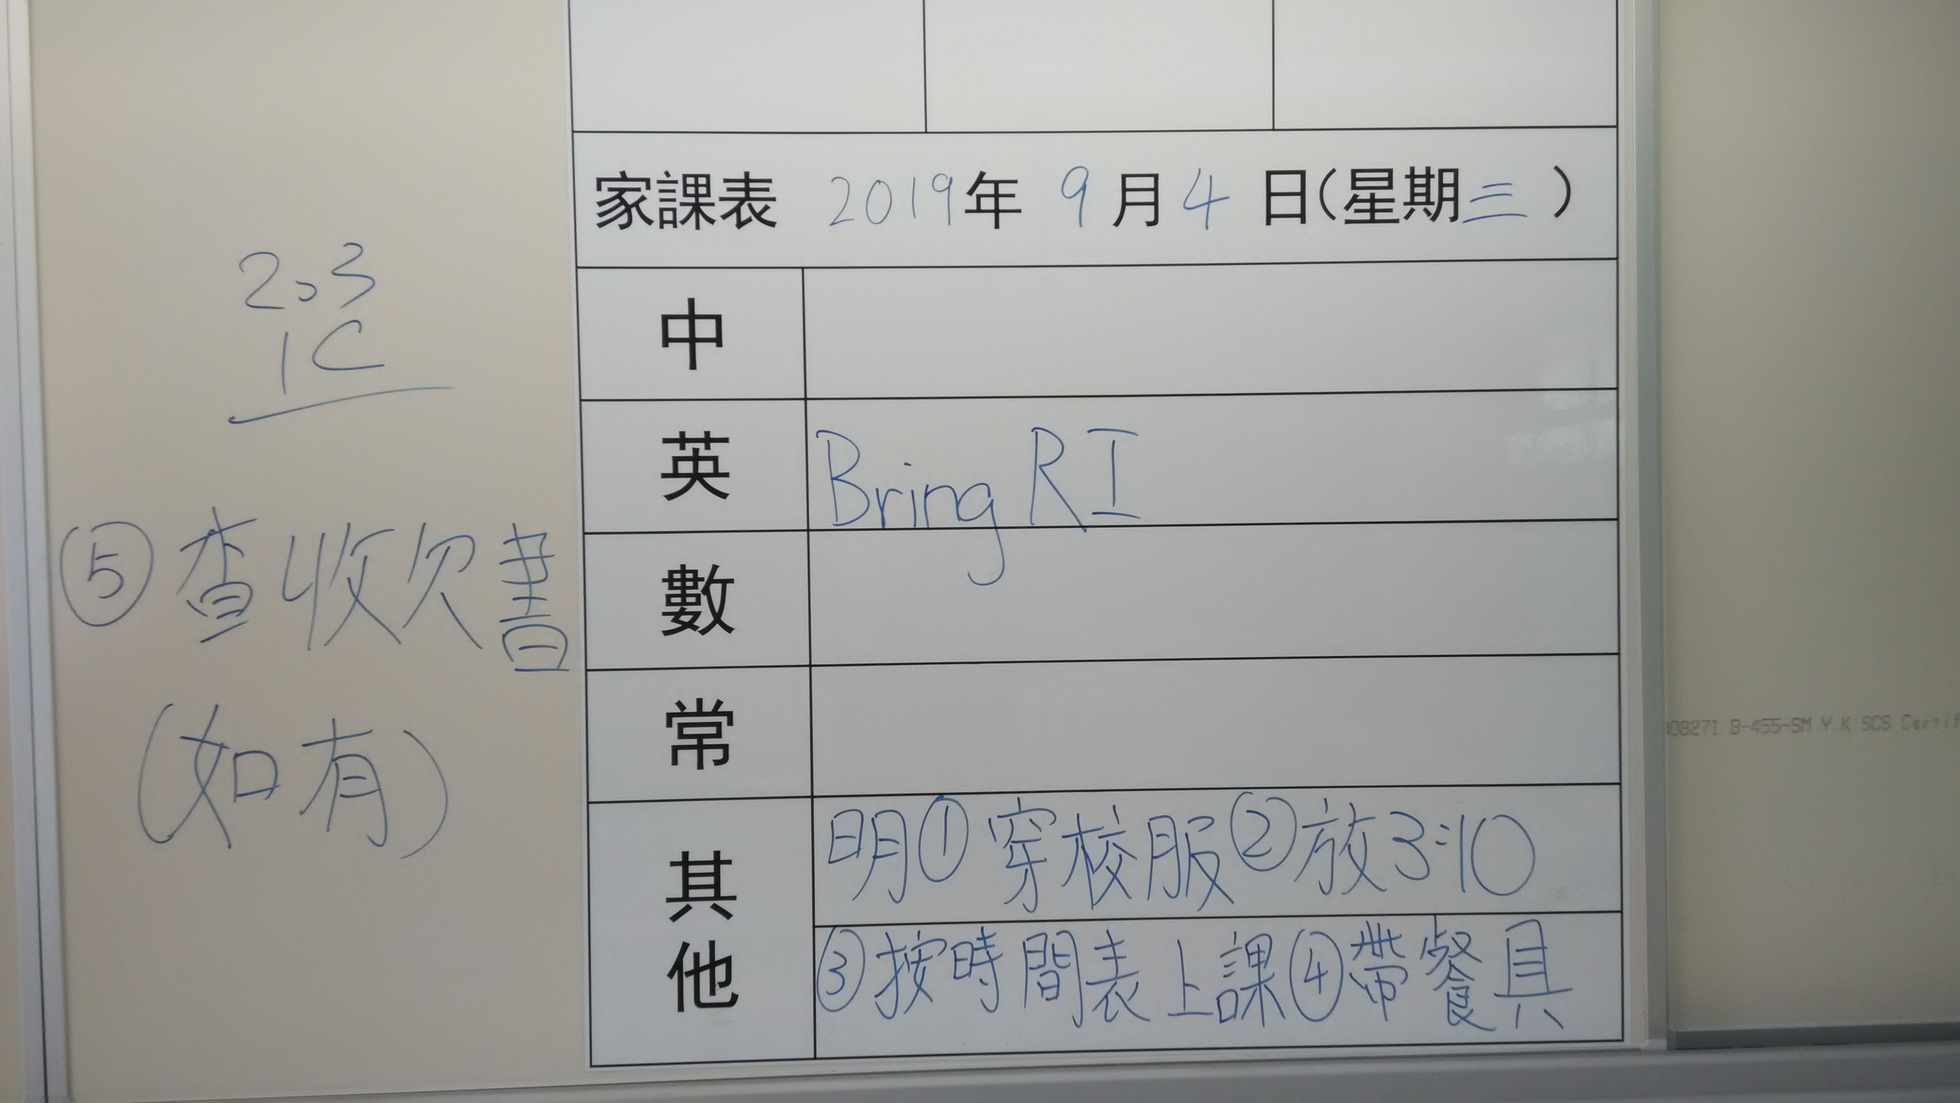 家課表 2019年 9月4日(星期三)
中
英 Bring RI
數
常
其他 明①穿校服②放3:10
③按時間表上課④帶餐具
203
1C
⑤查收欠書
(如有)
08271 B-455-SM Y K SCS Certif